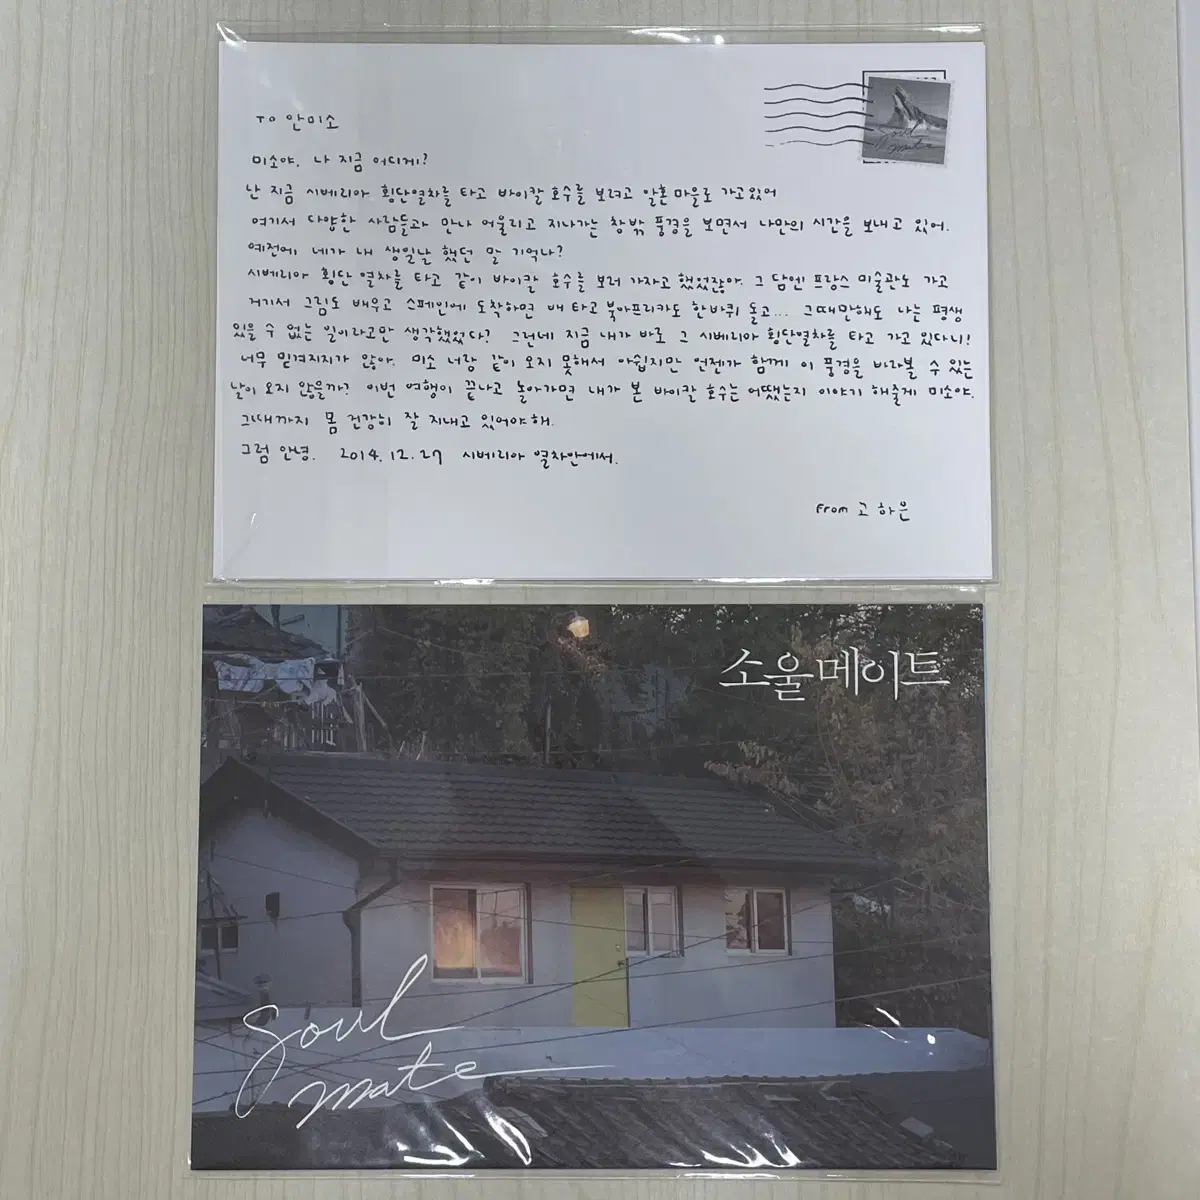 To 안미소
미소야, 나 지금 어디게?
난 지금 시베리아 횡단열차를 타고 바이칼 호수를 보려고 알혼마을로 가고있어
여기서 다양한 사람들과 만나 어울리고 지나가는 창밖 풍경을 보면서 나만의 시간을 보내고 있어.
예전에 네가 내 생일날 했던 말 기억나?
시베리아 횡단 열차를 타고 같이 바이칼 호수를 보러 가자고 했었잖아. 그 담엔 프랑스 미술관도 가고
거기서 그림도 배우고 스페인에 도착하면 배 타고 북아프리카도 한바퀴 돌고... 그때만해도 나는 평생
있을 수 없는 일이라고만 생각했었다? 그런데 지금 내가 바로 그 시베리아 횡단열차를 타고 가고 있다니!
너무 믿겨지지가 않아. 미소 너랑 같이 오지 못해서 아쉽지만 언젠가 함께 이 풍경을 바라볼 수 있는
날이 오지 않을까? 이번 여행이 끝나고 돌아가면 내가 본 바이칼 호수는 어땠는지 이야기 해줄게 미소야.
그때까지 몸 건강히 잘 지내고 있어야해.
그럼 안녕. 2014.12.27 시베리아 열차안에서.
From 고 하은
Soul
mate
소울메이트
Soul
mate